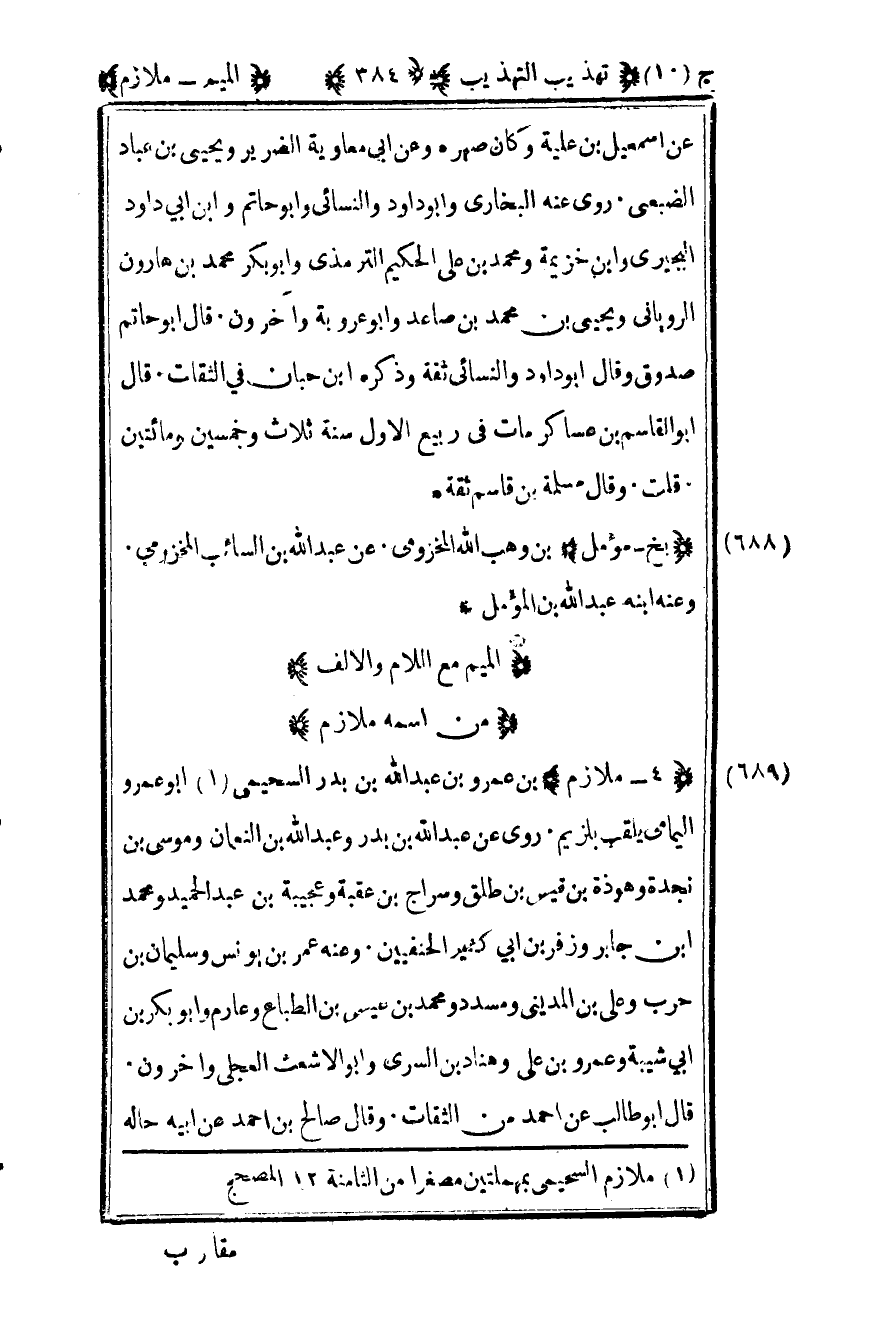 ج (١٠) ﴿ تهذيب التهذيب ﴾ ﴿ ٣٨٤ ﴾ ﴿ الميم ـ ملازم ﴾
عن اسمعيل بن علية وكان صهره وعن ابي معاوية الضرير ويحيى بن عباد
الضبعى ٠ روى عنه البخارى وابوداود والنسائى وابوحاتم و ابن ابي داود
البجيرى وابن خزيمة ومحمد بن على الحكيم الترمذى وابوبكر محمد بن هارون
الرويانى ويحيى بن محمد بن صاعد وابوعروبة وآخرون ٠ قال ابوحاتم
صدوق وقال ابوداود والنسائى ثقة وذكره ابن حبان في الثقات ٠ قال
ابوالقاسم بن عساكر مات فى ربيع الاول سنة ثلاث وخمسين ومائتين
٠ قلت ٠ وقال مسلمة بن قاسم ثقة *
(٦٨٨) ﴿ بخ ـ مؤمل ﴾ بن وهب الله المخزومى ٠ عن عبدالله بن السائب المخزومي ٠
وعنه ابنه عبدالله بن المؤمل *
﴿ الميم مع اللام والالف ﴾
﴿ من اسمه ملازم ﴾
(٦٨٩) ﴿ ٤ ـ ملازم ﴾ بن عمرو بن عبدالله بن بدر السحيمى (١) ابوعمرو
اليمامى يلقب بلزيم ٠ روى عن عبدالله بن بدر وعبدالله بن النعمان وموسى بن
نجدة وهوذة بن قيس بن طلق وسراج بن عقبة وعجيبة بن عبدالحميد ومحمد
ابن جابر وزفر بن ابي كثير الحنفيين ٠ وعنه عمر بن يونس وسليمان بن
حرب وعلى بن المدينى ومسدد ومحمد بن عيسى بن الطباع وعارم وابو بكر بن
ابي شيبة وعمرو بن على وهناد بن السرى وابوالاشعث العجلى واخرون ٠
قال ابوطالب عن احمد من الثقات ٠ وقال صالح بن احمد عن ابيه حاله
(١) ملازم السحيمى بمهملتين مصغرا من الثامنة ١٢ المصحح
مقارب